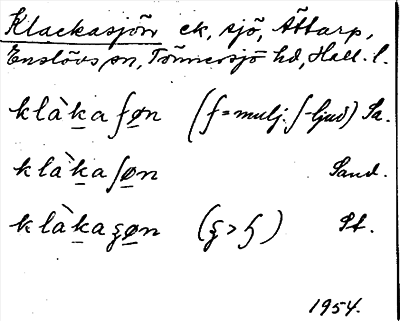 Klackasjön ek, sjö, Ättarp,
Enslövs sn, Tönnersjö hd, Hall. l.
klàka ʃøn (ʃ = mulj. ʃ-ljud) Sa.
klàkaʃøn Sand.
klàkaʂøn (ʂ > ʃ) St.
1954.